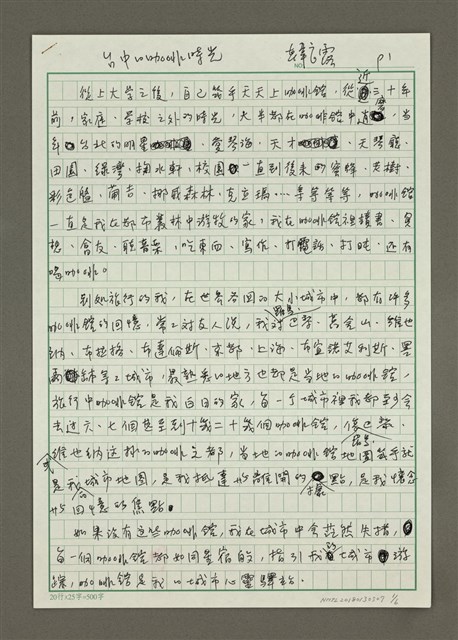 台中的咖啡時光 韓良露 P1
從上大學之後，自己幾乎天天上咖啡館，從近三十年
前，家庭、學校之外的時光，大半都在咖啡館中消磨，當
年台北的明星、愛琴海、天才、天琴廳、
田園、綠灣、掬水軒、校園一直到後來的蜜蜂、芳鄰、
普吉、挪威森林、克立瑪…等等等等，咖啡館
一直是我在都市叢林中游牧的家，我在咖啡館裡讀書、冥
想、會友、聽音樂、吃東西、寫作、打電話、打盹，還有
喝咖啡。
到處旅行的我，在世界各國的大小城市中，都有許多
咖啡館的回憶，常常對友人說，我對巴黎、羅馬、舊金山、維也
納、布拉格、布達佩斯、京都、上海、布宜諾艾利斯、墨
等等城市，最熟悉的地方也都是當地的咖啡館，
旅行中咖啡館是我白日的家，每一個城市裡我都至少會
去過六、七個甚至到十幾二十幾個咖啡館，像巴黎、羅馬、
維也納這樣的咖啡之都，當地的咖啡館地圖幾乎就
是我的城市地圖，是我抵達的點，是我懷念
的回憶的焦點。
如果沒有這些咖啡館，我在城市中會茫然失措，
每一個咖啡館都如同星宿的，指引我的城市遊
蹤，咖啡館是我的城市心靈驛站。
20行×25字=500字